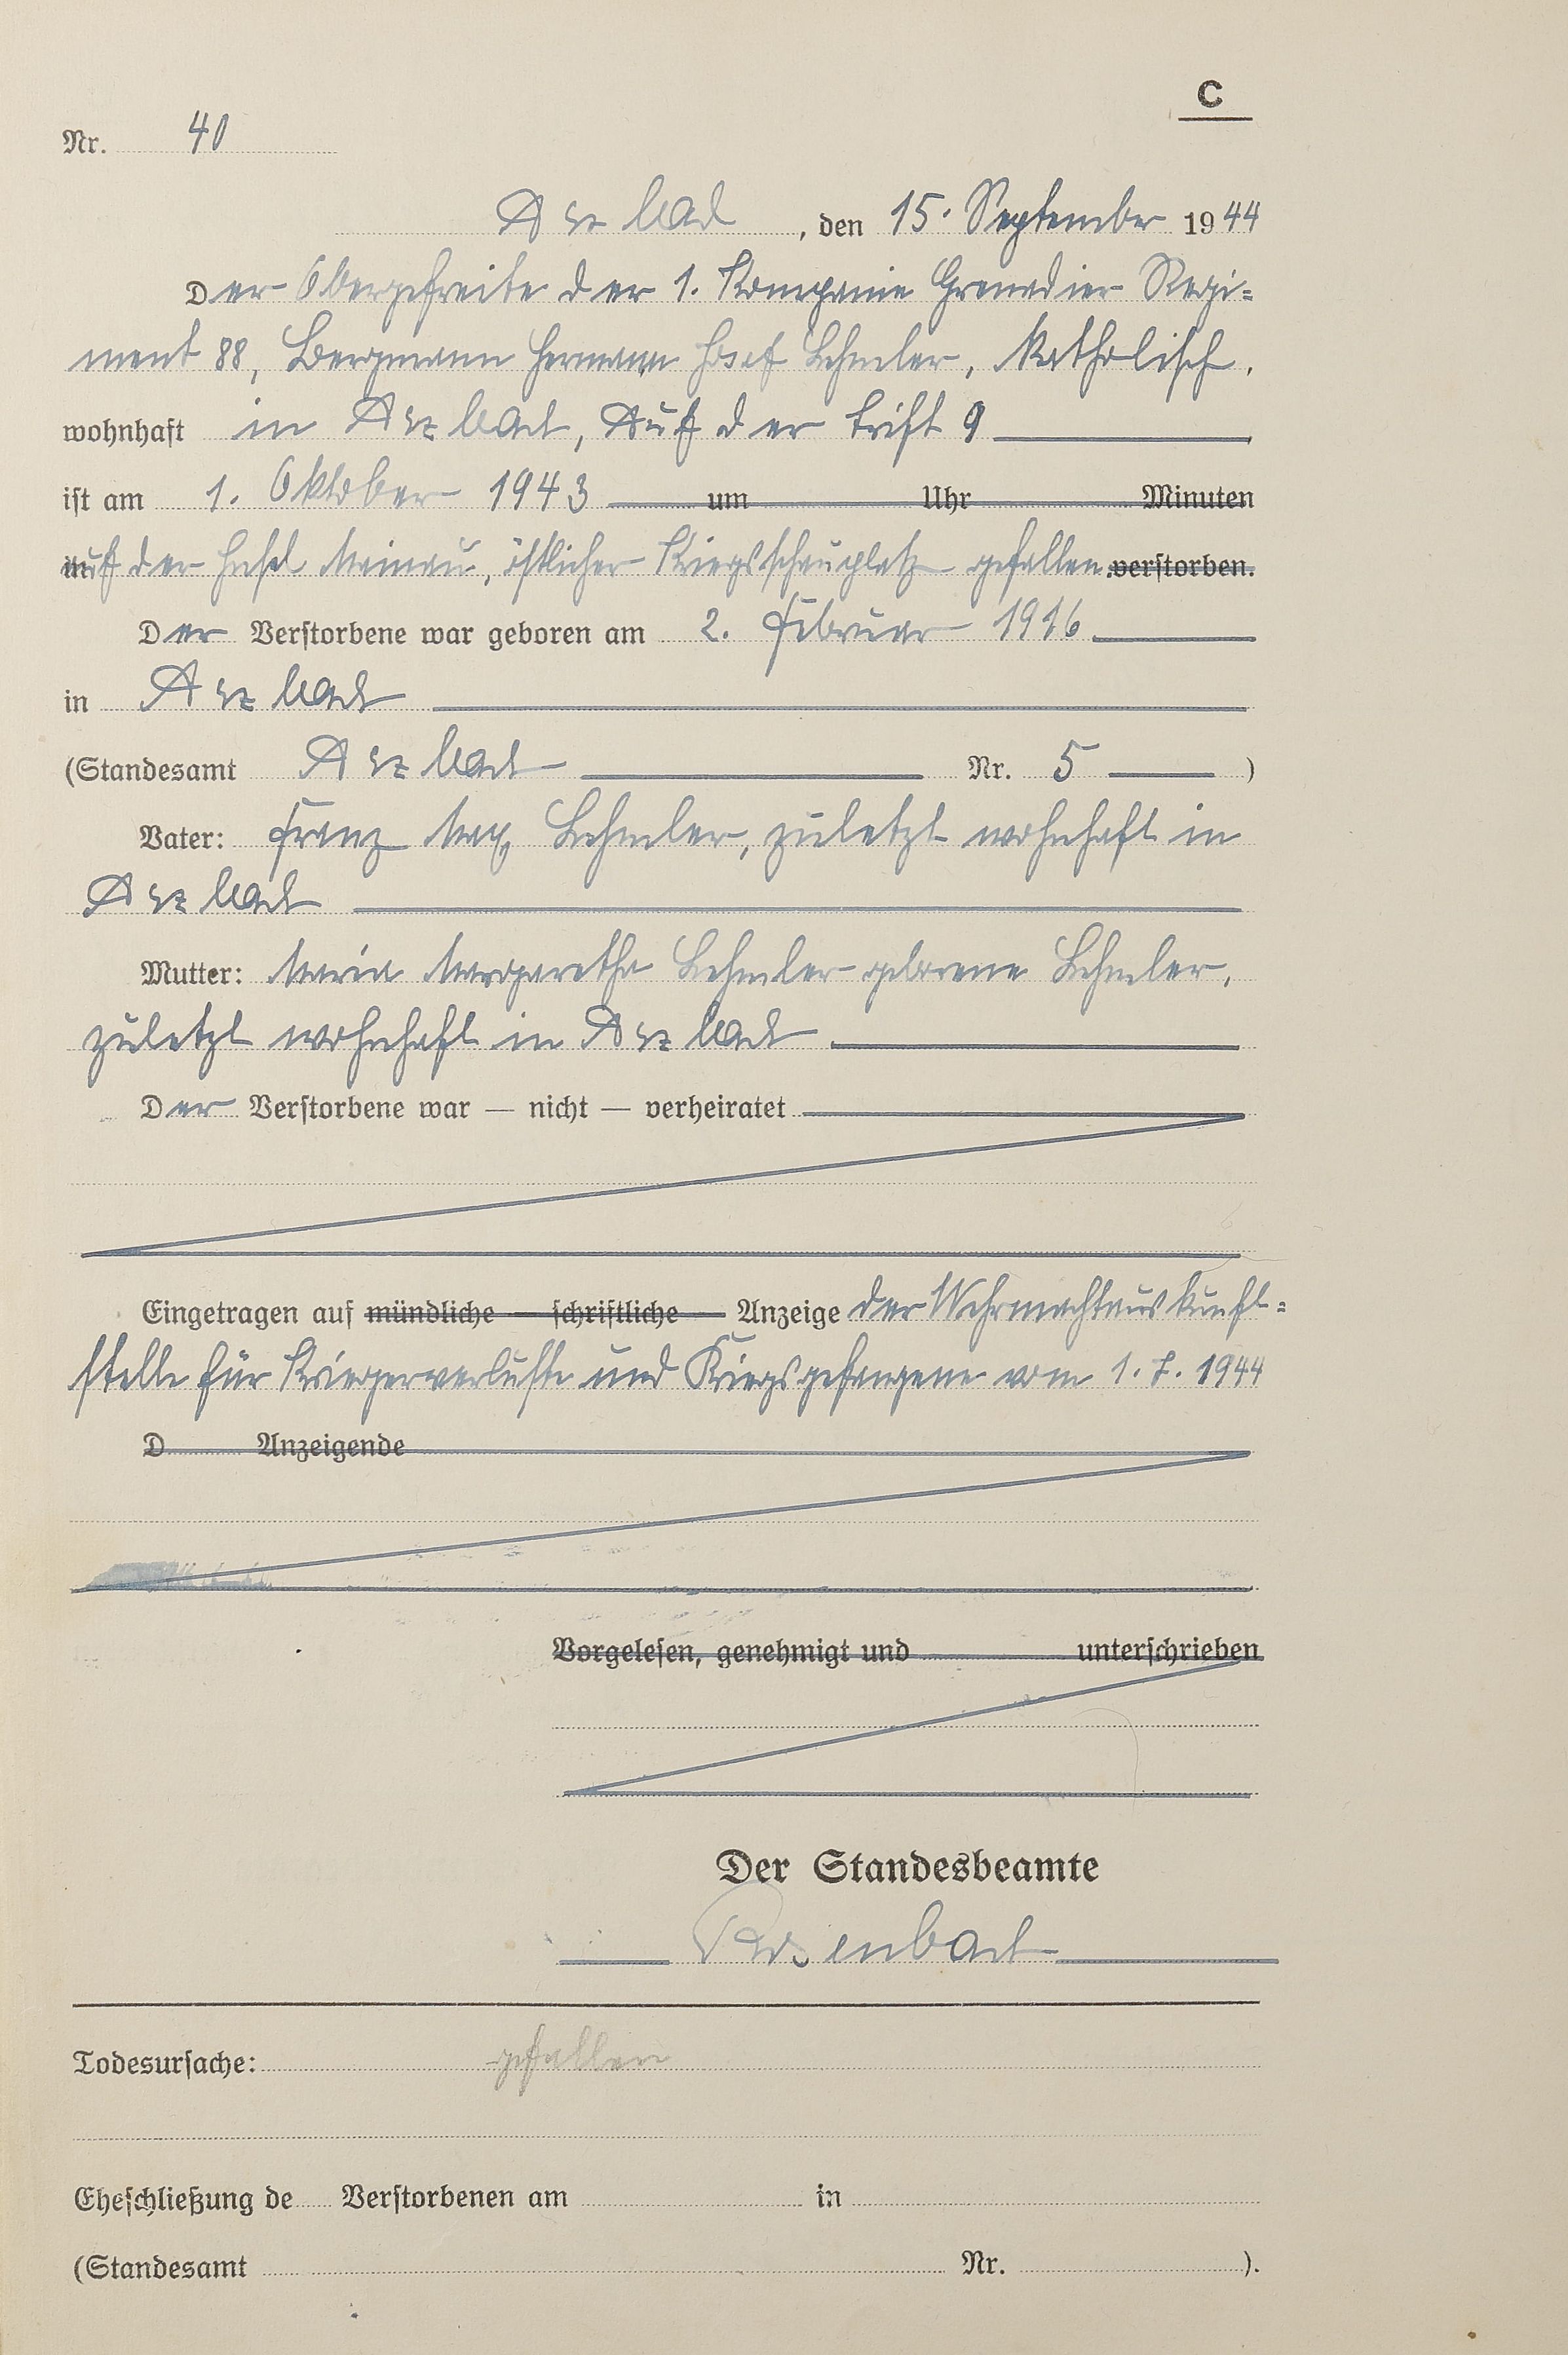 C
Nr. 40
Arzbach, den 15. September 1944
Der Obergefreite der 1. Kompanie Grenadier Regi=
ment 88, Bergmann Hermann Josef Lehmler, katholisch,
wohnhaft in Arzbach, Auf der Trift 9
ist am 1. Oktober 1943 um Uhr Minuten
auf der Insel Mainau, östlicher Kriegsschauplatz gefallen. verstorben.
Der Verstorbene war geboren am 2. Februar 1916
in Arzbach
(Standesamt Arzbach Nr. 5 )
Vater: Franz Max Lehmler, zuletzt wohnhaft in
Arzbach
Mutter: Maria Margaretha Lehmler geborene Lehmler,
zuletzt wohnhaft in Arzbach
Der Verstorbene war — nicht — verheiratet
Eingetragen auf mündliche — schriftliche — Anzeige der Wehrmachtauskunft=
stelle für Kriegerverluste und Kriegsgefangene vom 1. 7. 1944
D Anzeigende
Vorgelesen, genehmigt und unterschrieben
Der Standesbeamte
Rosenbach
Todesursache: gefallen
Eheschließung de Verstorbenen am in
(Standesamt Nr. ).